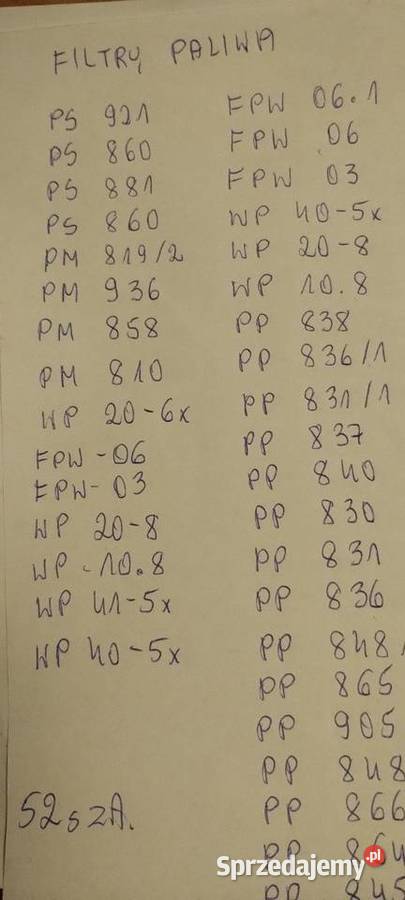 FILTRY PALIWA
PS 921
PS 860
PS 881
PS 860
PM 819/2
PM 936
PM 858
PM 810
WP 20-6x
FPW-06
FPW-03
WP 20-8
WP-10.8
WP 41-5x
WP 40-5x
52szt.
FPW 06.1
FPW 06
FPW 03
WP 40-5x
WP 20-8
WP 10.8
PP 838
PP 836/1
PP 831/1
PP 837
PP 840
PP 830
PP 831
PP 836
PP 848
PP 865
PP 905
PP 848
PP 866
PP 864
PP 845
Sprzedajemy.pl